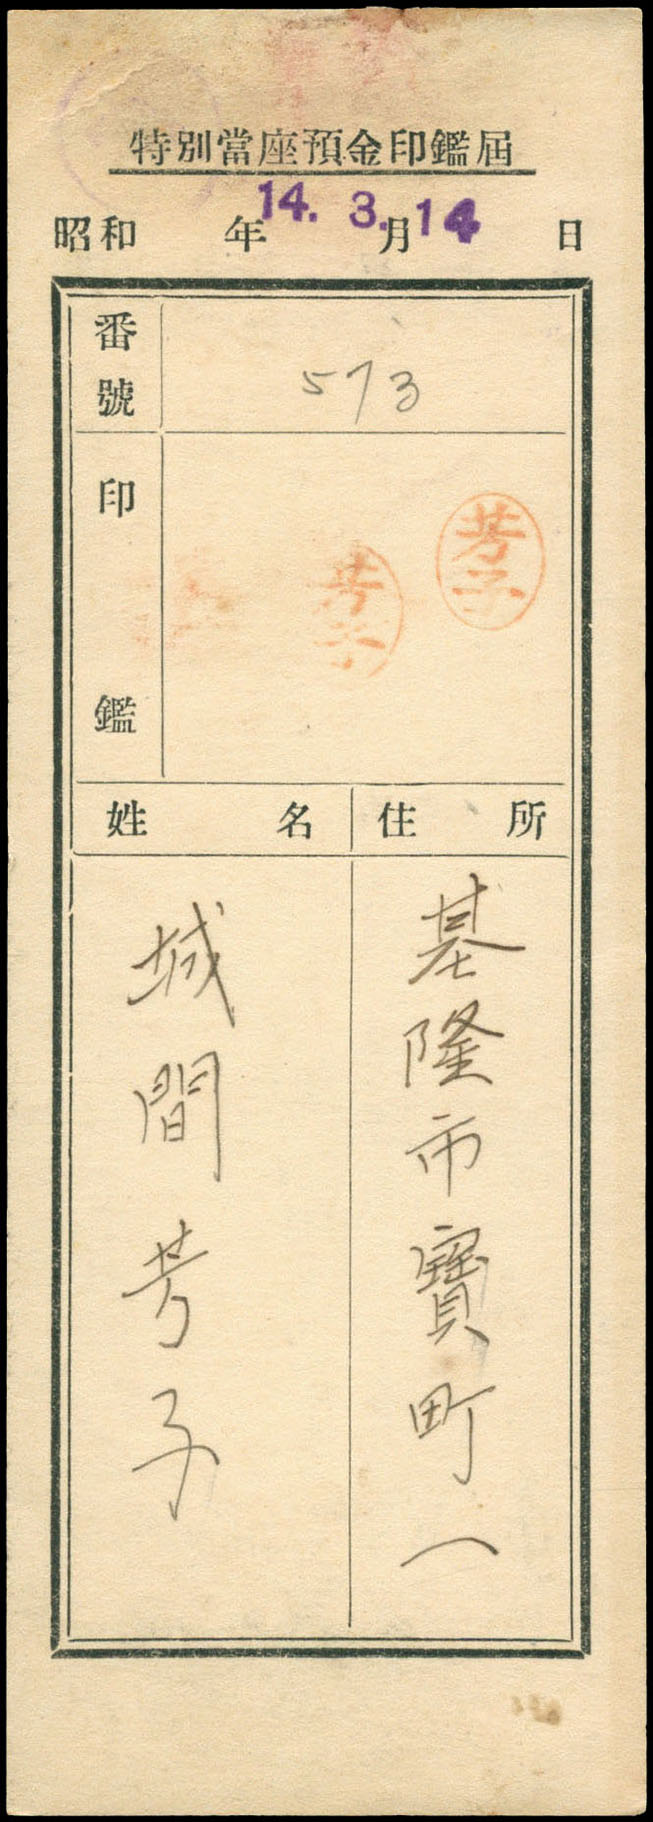 特別當座預金印鑑屆
昭和 年 月 日
14. 3. 14
番號
573
印鑑
芳子
芳子
住所
基隆市寶町一
姓名
城間芳子